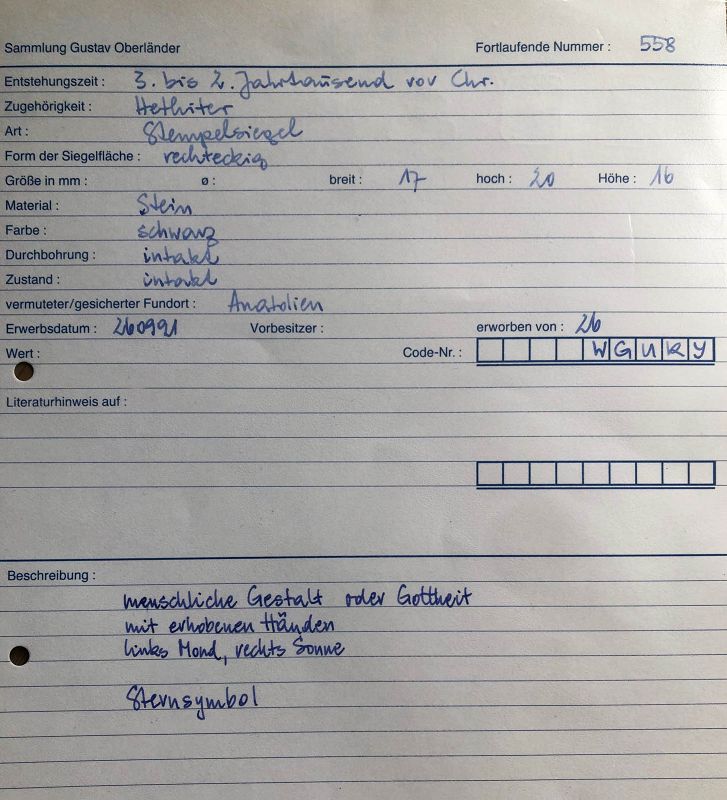 Sammlung Gustav Oberländer Fortlaufende Nummer : 558
Entstehungszeit : 3. bis 2. Jahrhausend vor Chr.
Zugehörigkeit : Hethiter
Art : Stempelsiegel
Form der Siegelfläche : rechteckig
Größe in mm : ø : breit : 17 hoch : 20 Höhe : 16
Material : Stein
Farbe : schwarz
Durchbohrung : intakt
Zustand : intakt
vermuteter/gesicherter Fundort : Anatolien
Erwerbsdatum : 260991 Vorbesitzer : erworben von : 26
Wert : Code-Nr. : WGUKY
Literaturhinweis auf :
Beschreibung :
menschliche Gestalt oder Gottheit
mit erhobenen Händen
links Mond, rechts Sonne
Sternsymbol